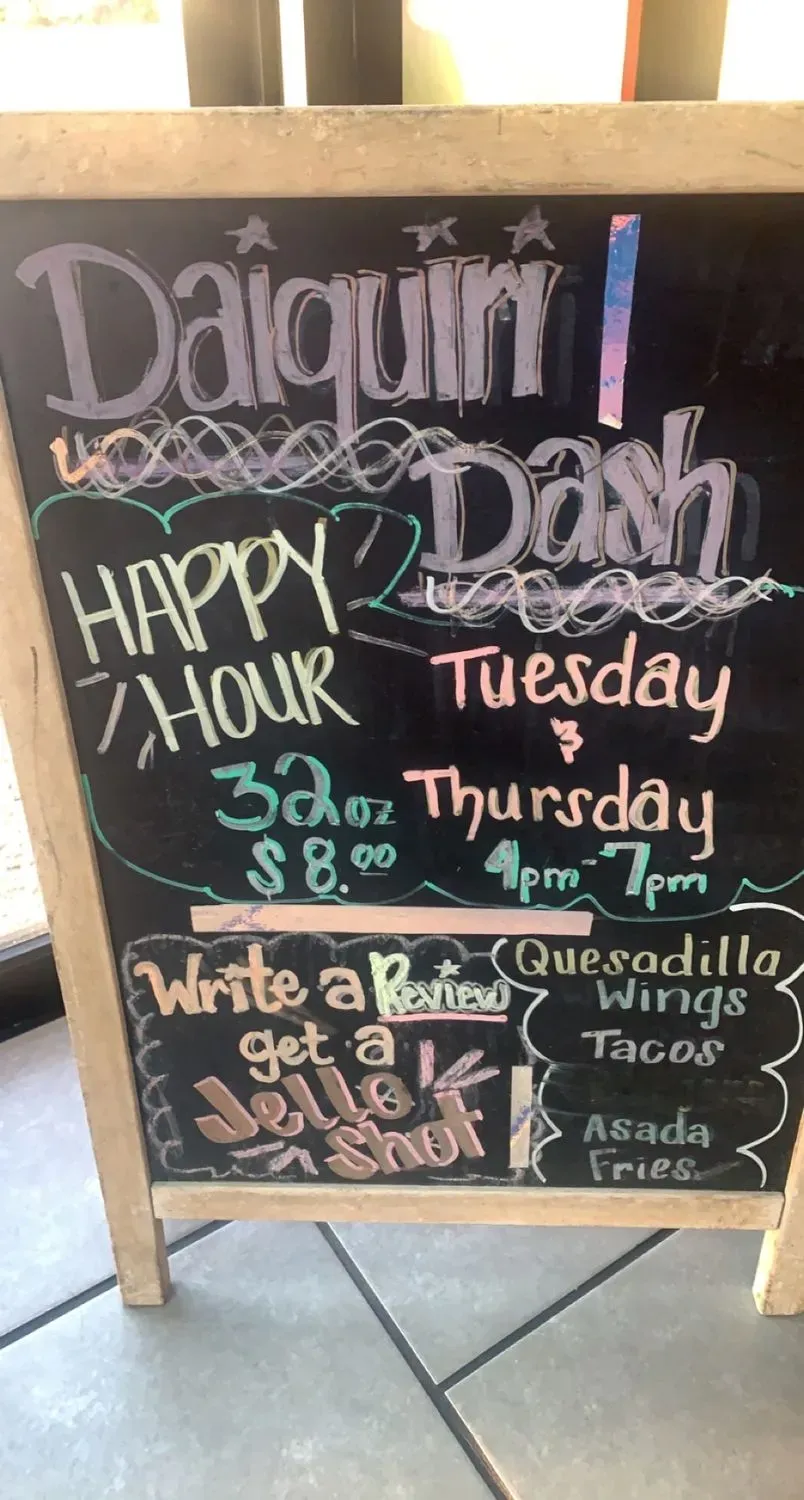 Daiquiri
Dash
HAPPY
HOUR
32oz
$8.00
Tuesday
&
Thursday
4pm-7pm
Write a Review
get a
Jello
shot
Quesadilla
Wings
Tacos
Asada
Fries